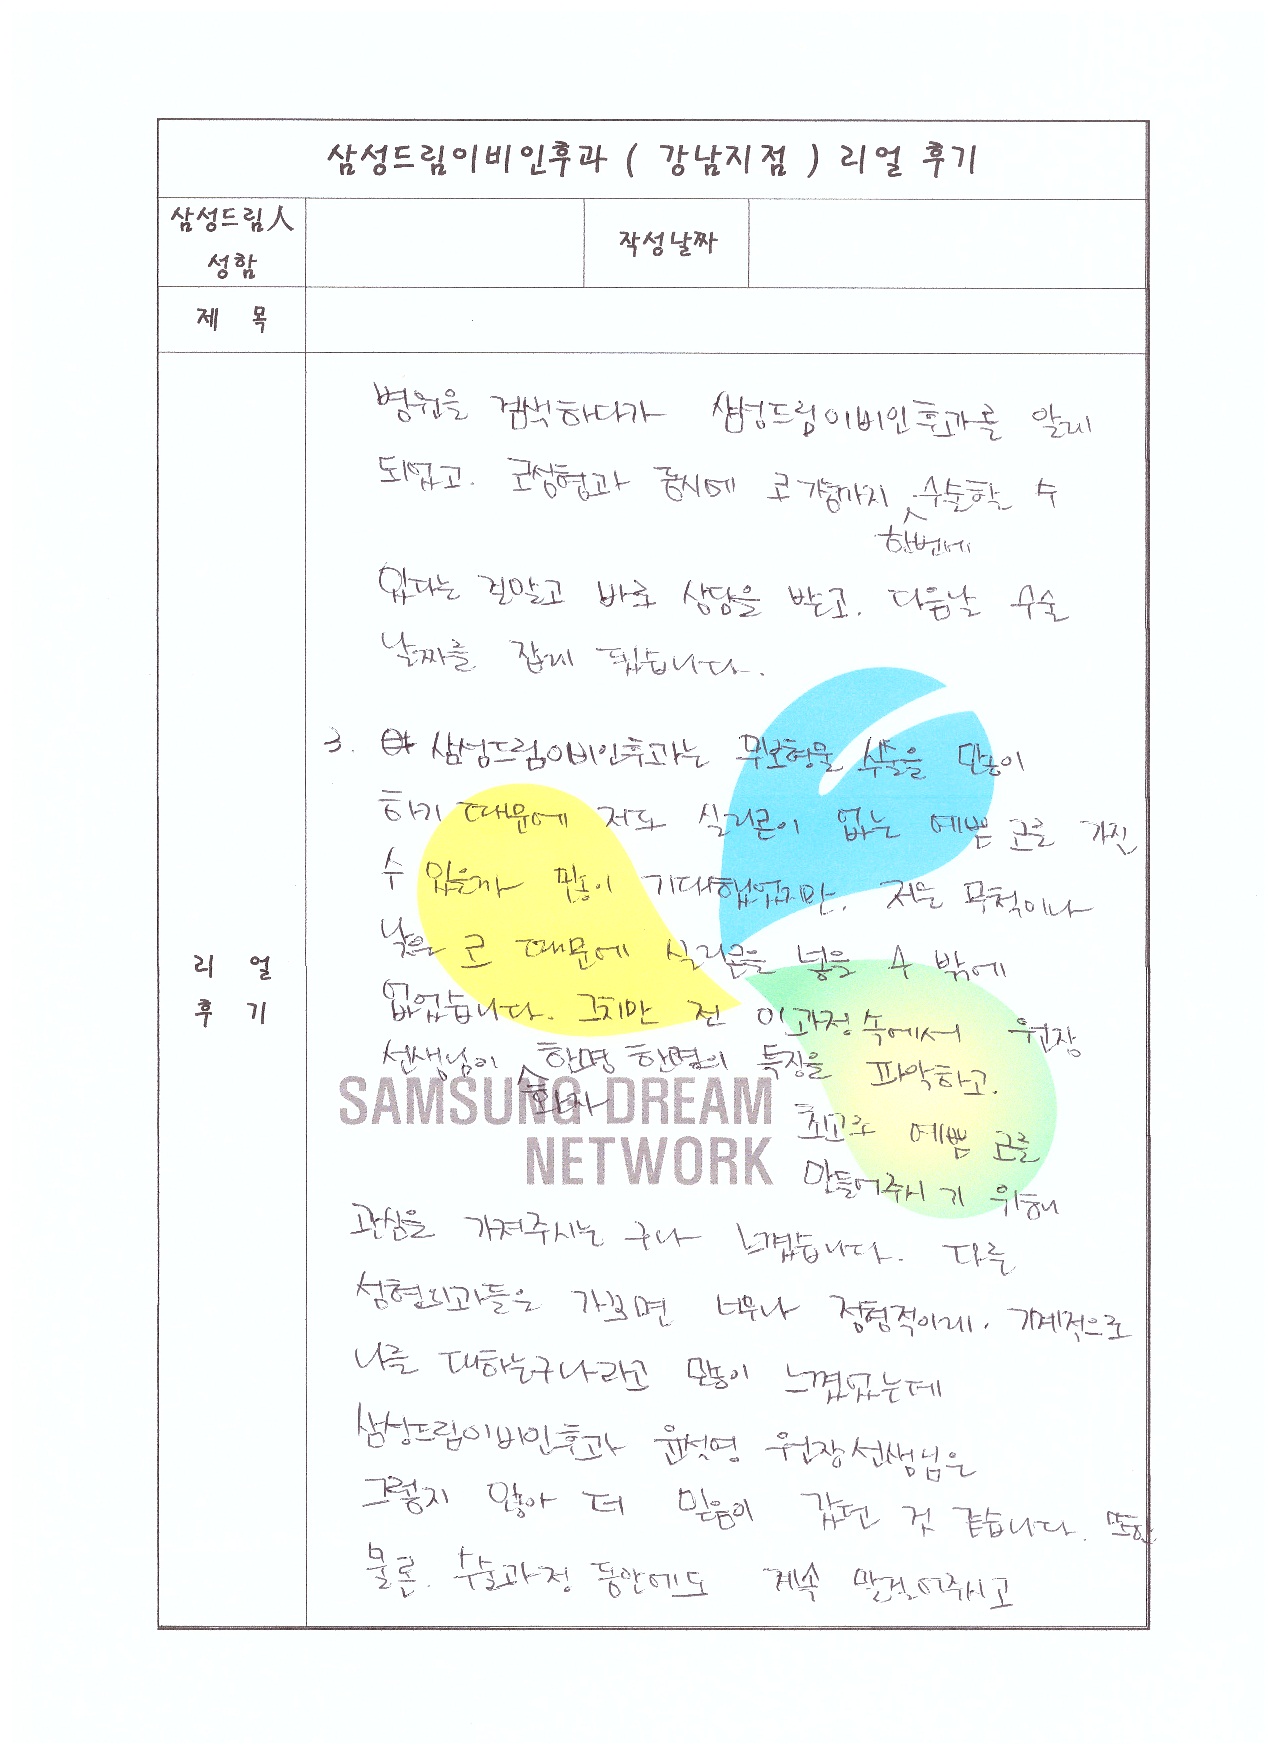 삼성드림이비인후과 ( 강남지점 ) 리얼 후기
삼성드림人
성함
작성날짜
제 목
리 얼
후 기
병원을 검색하다가 삼성드림이비인후과를 알게
되었고. 코성형과 동시에 코 기능까지 한번에 수술할 수
있다는 걸알고 바로 상담을 받고. 다음날 수술
날짜를 잡게 됬습니다.
3. 삼성드림이비인후과는 무보형물 수술을 많이
하기 때문에 저도 실리콘이 없는 예쁜 코를 가질
수 있을까 많이 기대했었지만. 저는 무척이나
낮은 코 때문에 실리콘을 넣을 수 밖에
없었습니다. 그치만 전 이과정 속에서 원장
선생님이 환자 한명 한명의 특징을 파악하고.
최고로 예쁜 코를
만들어주시기 위해
관심을 가져주시는 구나 느꼈습니다. 다른
성형외과들은 가보면 너무나 정형적이게. 기계적으로
나를 대하는구나라고 많이 느꼈었는데
삼성드림이비인후과 원장선생님은
그렇지 않아 더 믿음이 갔던 것 같습니다. 또한
물론. 수술과정 동안에도 계속 말걸어주시고
SAMSUNG DREAM
NETWORK